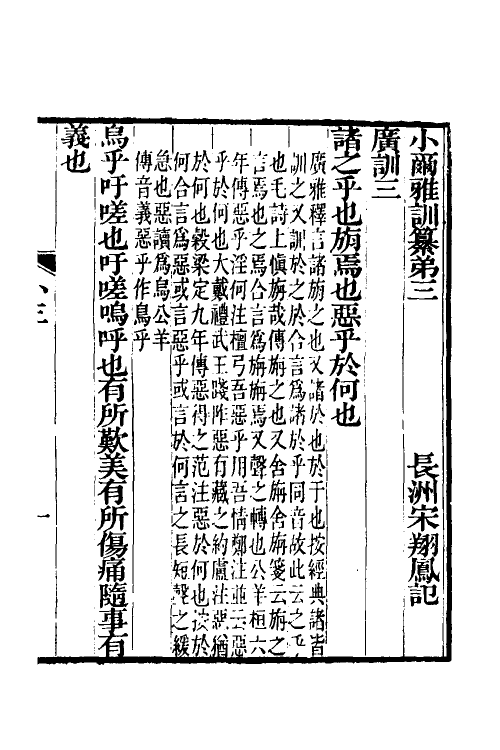 小爾雅訓纂弟三
長洲宋翔鳳記
廣訓三
諸之乎也旃焉也惡乎於何也
廣雅釋言諸旃之也又諸於也於于也按經典諸皆
訓之又訓於之於合言爲諸於乎同音故此云之乎
也毛詩上愼旃哉傳旃之也又舍旃舍旃箋云旃之
言焉也之焉合言爲旃旃焉又聲之轉也公羊桓六
年傳惡乎淫何注檀弓吾惡乎用吾情鄭注並云惡
乎於何也大戴禮武王踐阼惡有藏之約盧注惡猶
於何也穀梁定九年傳惡得之范注惡於何也按於
何合言爲惡或言惡乎或言於何言之長短聲之緩
急也惡讀爲烏公羊
傳音義惡乎作烏乎
烏乎吁嗟也吁嗟嗚呼也有所歎美有所傷痛隨事有
義也
小三
一